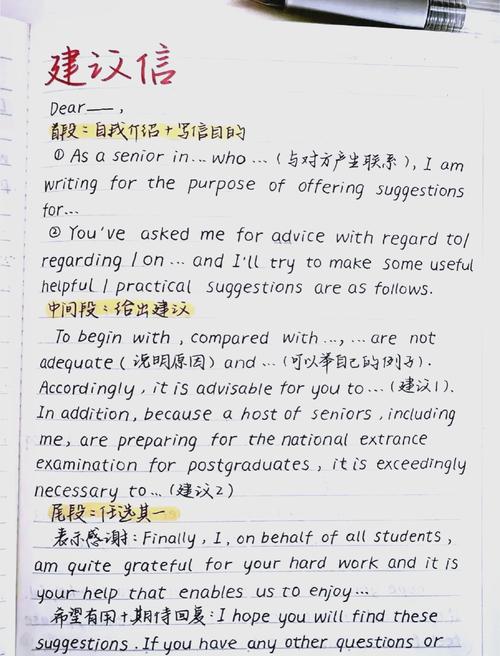 建议信
Dear——,
首段：自我介绍＋写信目的
① As a senior in... who ...（与对方产生联系）, I am
writing for the purpose of offering suggestions
for...
② You've asked me for advice with regard to/
regarding / on ... and I'll try to make some useful
helpful / practical suggestions are as follows.
中间段：给出建议
To begin with, compared with ..., ... are not
adequate（说明原因）and ...（可以举自己的例子）.
Accordingly, it is advisable for you to ...（建议1）.
In addition, because a host of seniors, including
me, are preparing for the national extrance
examination for postgraduates, it is exceedingly
necessary to ...（建议2）
尾段：任选其一
表示感谢：Finally, I, on behalf of all students,
am quite grateful for your hard work and it is
your help that enables us to enjoy...
希望有用＋期待回复：I hope you will find these
suggestions. If you have any other questions or